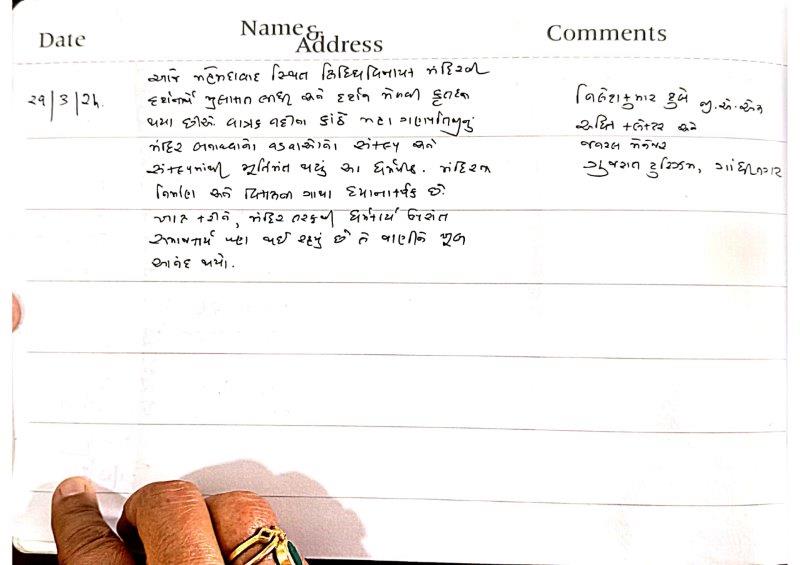 Date
Name &
Address
Comments
29/3/24.
આજે મહેમદાવાદ સ્થિત સિદ્ધિવિનાયક મંદિરની
દર્શનાર્થે મુલાકાત લીધી અને દર્શન મેળવી કૃતજ્ઞ
થયા છીએ. વાત્રક નદીના કાંઠે મહા ગણપતિજીનું
મંદિર બનાવવાનો વડવાઓનો સંકલ્પ અને
સંકલ્પમાંથી મૂર્તિમંત થયું આ ધર્મપીઠ. મંદિરના
નિર્માણ અને વિકાસના ગાથા ધ્યાનાકર્ષક છે.
ખાસ કરીને, મંદિર તરફથી ધર્મકાર્ય ઉપરાંત
સમાજકાર્ય પણ થઈ રહ્યું છે તે જાણીને ખૂબ
આનંદ થયો.
કુમાર દુબે જી.એ.એસ
અધિક કલેક્ટર અને
જનરલ મેનેજર
ગુજરાત ટુરિઝમ, ગાંધીનગર